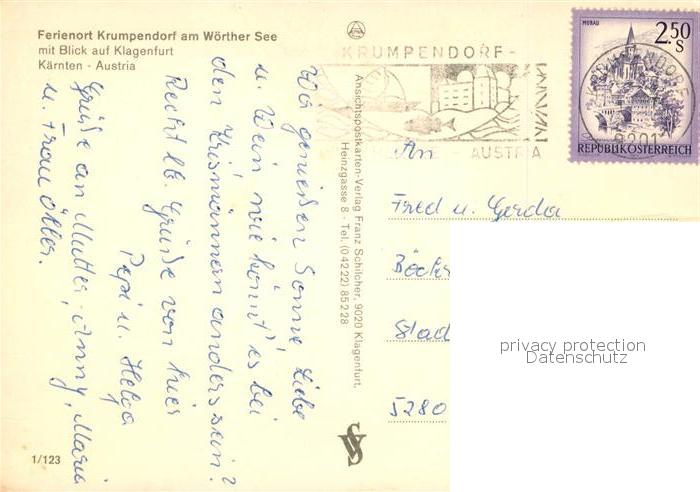 Ferienort Krumpendorf am Wörther See
mit Blick auf Klagenfurt
Kärnten - Austria
Wir genießen Sonne, Liebe
u. Wein wie könnt' es bei
den anders sein?
Recht lb. Grüße von hier
Pepi u. Helga
Grüße an Mutter, Anny, Maria
u. Frau
1/123
Ansichtspostkarten-Verlag Franz Schilcher, 9020 Klagenfurt,
Heinzgasse 8 - Tel. (0 42 22) 8 52 28
KRUMPENDORF -
AUSTRIA
MURAU
2.50
S
REPUBLIK ÖSTERREICH
An
Fred u. Gerda
5280
privacy protection
Datenschutz